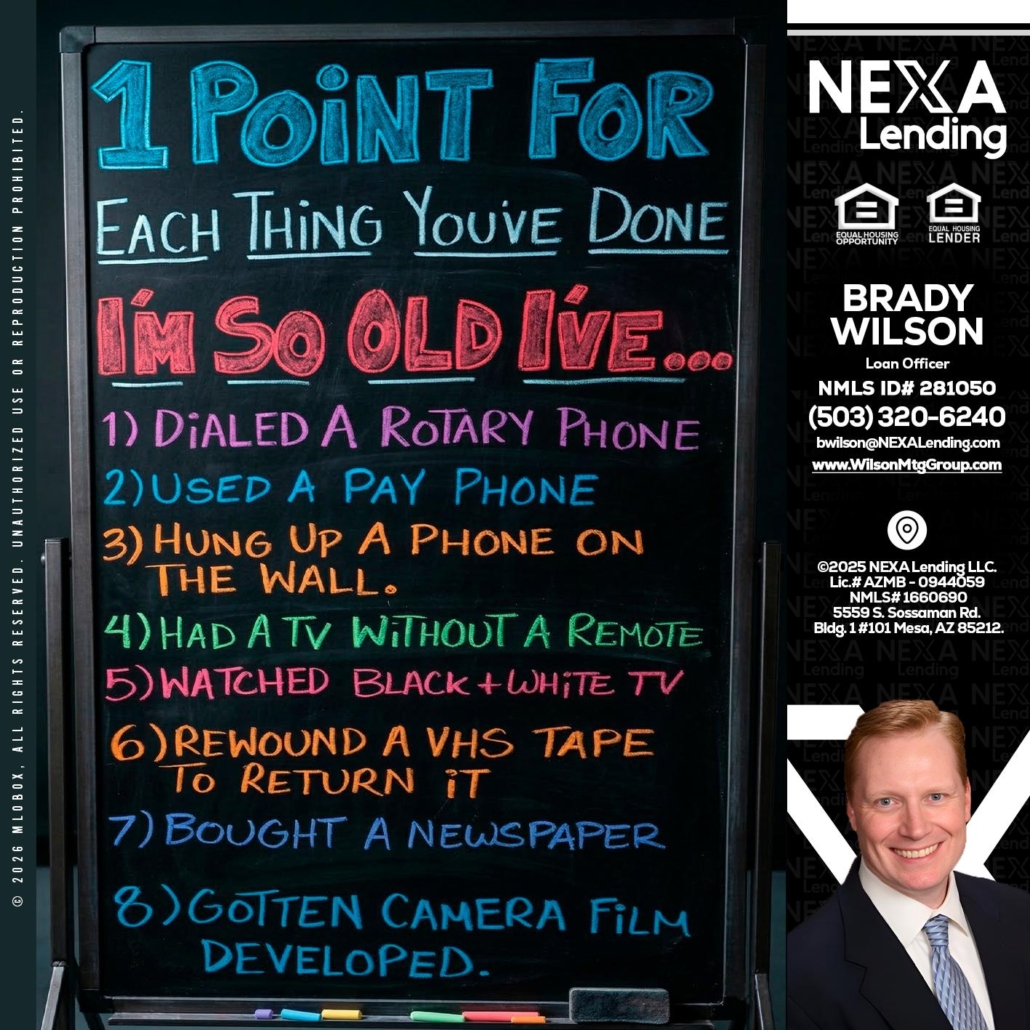 © 2026 MLOBOX, ALL RIGHTS RESERVED. UNAUTHORIZED USE OR REPRODUCTION PROHIBITED.
1 POiNT FOR
EACH THING YOU'VE DONE
I'M SO OLD I'VE...
1) DiALED A ROTARY PHONE
2) USED A PAY PHONE
3) HUNG UP A PHONE ON
THE WALL.
4) HAD A TV WiTHOUT A REMOTE
5) WATCHED BLACK + WHiTE TV
6) REWOUND A VHS TAPE
TO RETURN iT
7) BOUGHT A NEWSPAPER
8) GOTTEN CAMERA FiLM
DEVELOPED.
NEXA
Lending
EQUAL HOUSING
OPPORTUNITY
EQUAL HOUSING
LENDER
BRADY
WILSON
Loan Officer
NMLS ID# 281050
(503) 320-6240
bwilson@NEXALending.com
www.WilsonMtgGroup.com
©2025 NEXA Lending LLC.
Lic.# AZMB - 0944059
NMLS# 1660690
5559 S. Sossaman Rd.
Bldg. 1 #101 Mesa, AZ 85212.